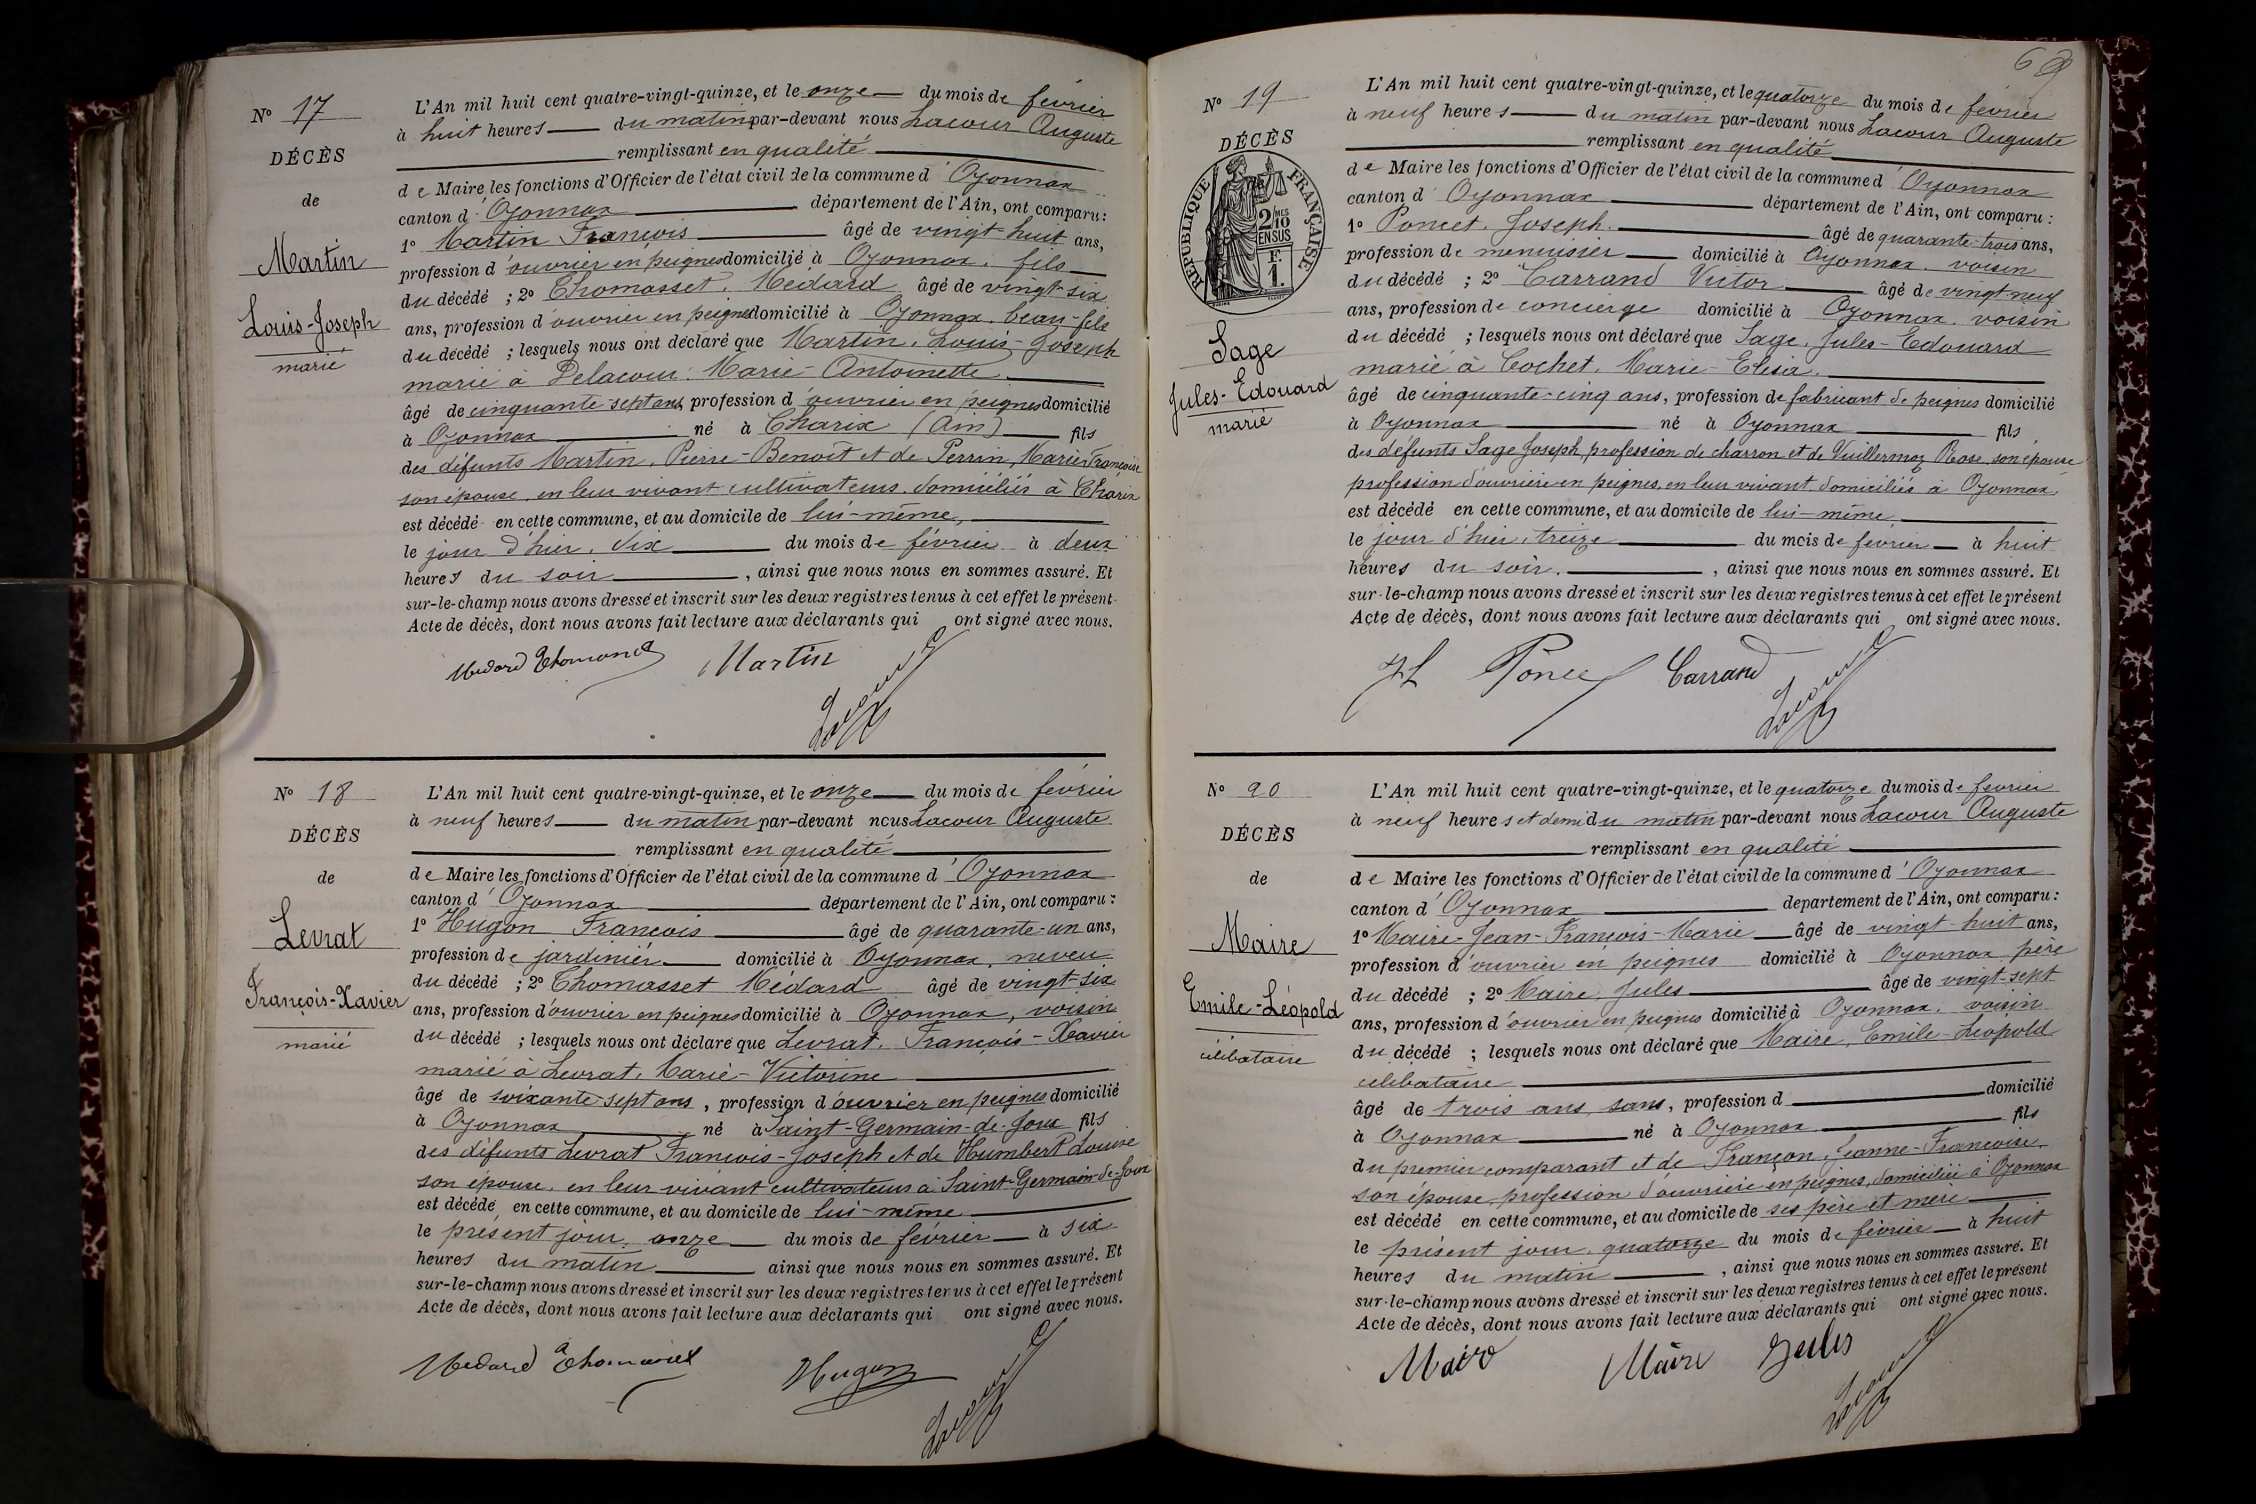 N° 17
DÉCÈS
de
Martin
Louis-Joseph
marié
L'An mil huit cent quatre-vingt-quinze, et le onze du mois de février
à huit heures du matin par-devant nous Lacour Auguste
remplissant en qualité
de Maire les fonctions d'Officier de l'état civil de la commune d'Oyonnax
canton d'Oyonnax département de l'Ain, ont comparu :
1° Martin François âgé de vingt-huit ans,
profession d'ouvrier en peignes domicilié à Oyonnax, fils
du décédé ; 2° Thomasset, Médard âgé de vingt-six
ans, profession d'ouvrier en peignes domicilié à Oyonnax, beau-fils
du décédé ; lesquels nous ont déclaré que Martin, Louis-Joseph
marié à Delacour, Marie-Antoinette
âgé de cinquante-sept ans, profession d'ouvrier en peignes domicilié
à Oyonnax né à Charix (Ain) fils
des défunts Martin, Pierre-Benoît et de Perrin, Marie-Françoise
son épouse, en leur vivant cultivateurs, domiciliés à Charix
est décédé en cette commune, et au domicile de lui-même,
le jour d'hier, dix du mois de février à deux
heures du soir, ainsi que nous nous en sommes assuré. Et
sur-le-champ nous avons dressé et inscrit sur les deux registres tenus à cet effet le présent
Acte de décès, dont nous avons fait lecture aux déclarants qui ont signé avec nous.
Martin
Lacour
N° 18
DÉCÈS
de
Levrat
François-Xavier
marié
L'An mil huit cent quatre-vingt-quinze, et le onze du mois de février
à neuf heures du matin par-devant nous Lacour Auguste
remplissant en qualité
de Maire les fonctions d'Officier de l'état civil de la commune d'Oyonnax
canton d'Oyonnax département de l'Ain, ont comparu :
1° Hugon François âgé de quarante-un ans,
profession de jardinier domicilié à Oyonnax, neveu
du décédé ; 2° Thomasset Médard âgé de vingt-six
ans, profession d'ouvrier en peignes domicilié à Oyonnax, voisin
du décédé ; lesquels nous ont déclaré que Levrat, François-Xavier
marié à Levrat, Marie-Victorine
âgé de soixante-sept ans, profession d'ouvrier en peignes domicilié
à Oyonnax né à Saint-Germain-de-Joux fils
des défunts Levrat François-Joseph et de Humbert Louise
son épouse, en leur vivant cultivateurs à Saint-Germain-de-Joux
est décédé en cette commune, et au domicile de lui-même
le présent jour, onze du mois de février à six
heures du matin ainsi que nous nous en sommes assuré. Et
sur-le-champ nous avons dressé et inscrit sur les deux registres tenus à cet effet le présent
Acte de décès, dont nous avons fait lecture aux déclarants qui ont signé avec nous.
Hugon
Lacour
69
N° 19
DÉCÈS
RÉPUBLIQUE FRANÇAISE
2/10 MES
EN SUS
F.
1.
Sage
Jules-Edouard
marié
L'An mil huit cent quatre-vingt-quinze, et le quatorze du mois de février
à neuf heures du matin par-devant nous Lacour Auguste
remplissant en qualité
de Maire les fonctions d'Officier de l'état civil de la commune d'Oyonnax
canton d'Oyonnax département de l'Ain, ont comparu :
1° Poncet, Joseph, âgé de quarante-trois ans,
profession de menuisier domicilié à Oyonnax, voisin
du décédé ; 2° Carrand Victor âgé de vingt-neuf
ans, profession de concierge domicilié à Oyonnax, voisin
du décédé ; lesquels nous ont déclaré que Sage, Jules-Edouard
marié à Cochet, Marie-Elisa,
âgé de cinquante-cinq ans, profession de fabricant de peignes domicilié
à Oyonnax né à Oyonnax fils
des défunts Sage Joseph, profession de charron et de Vuillermoz Rose, son épouse
profession d'ouvrière en peignes, en leur vivant, domiciliés à Oyonnax,
est décédé en cette commune, et au domicile de lui-même,
le jour d'hier, treize du mois de février à huit
heures du soir, ainsi que nous nous en sommes assuré. Et
sur-le-champ nous avons dressé et inscrit sur les deux registres tenus à cet effet le présent
Acte de décès, dont nous avons fait lecture aux déclarants qui ont signé avec nous.
Carrand
Lacour
N° 20
DÉCÈS
de
Maire
Emile-Léopold
célibataire
L'An mil huit cent quatre-vingt-quinze, et le quatorze du mois de février
à neuf heures et demi du matin par-devant nous Lacour Auguste
remplissant en qualité
de Maire les fonctions d'Officier de l'état civil de la commune d'Oyonnax
canton d'Oyonnax département de l'Ain, ont comparu :
1° Maire-Jean-François-Marie âgé de vingt-huit ans,
profession d'ouvrier en peignes domicilié à Oyonnax père
du décédé ; 2° Maire, Jules âgé de vingt-sept
ans, profession d'ouvrier en peignes domicilié à Oyonnax, voisin
du décédé ; lesquels nous ont déclaré que Maire, Emile-Léopold
célibataire
âgé de trois ans, sans, profession d domicilié
à Oyonnax né à Oyonnax fils
du premier comparant et de Françon, Jeanne-Françoise
son épouse, profession d'ouvrière en peignes, domiciliée à Oyonnax
est décédé en cette commune, et au domicile de ses père et mère
le présent jour, quatorze du mois de février à huit
heures du matin, ainsi que nous nous en sommes assuré. Et
sur-le-champ nous avons dressé et inscrit sur les deux registres tenus à cet effet le présent
Acte de décès, dont nous avons fait lecture aux déclarants qui ont signé avec nous.
Maire Jules
Lacour